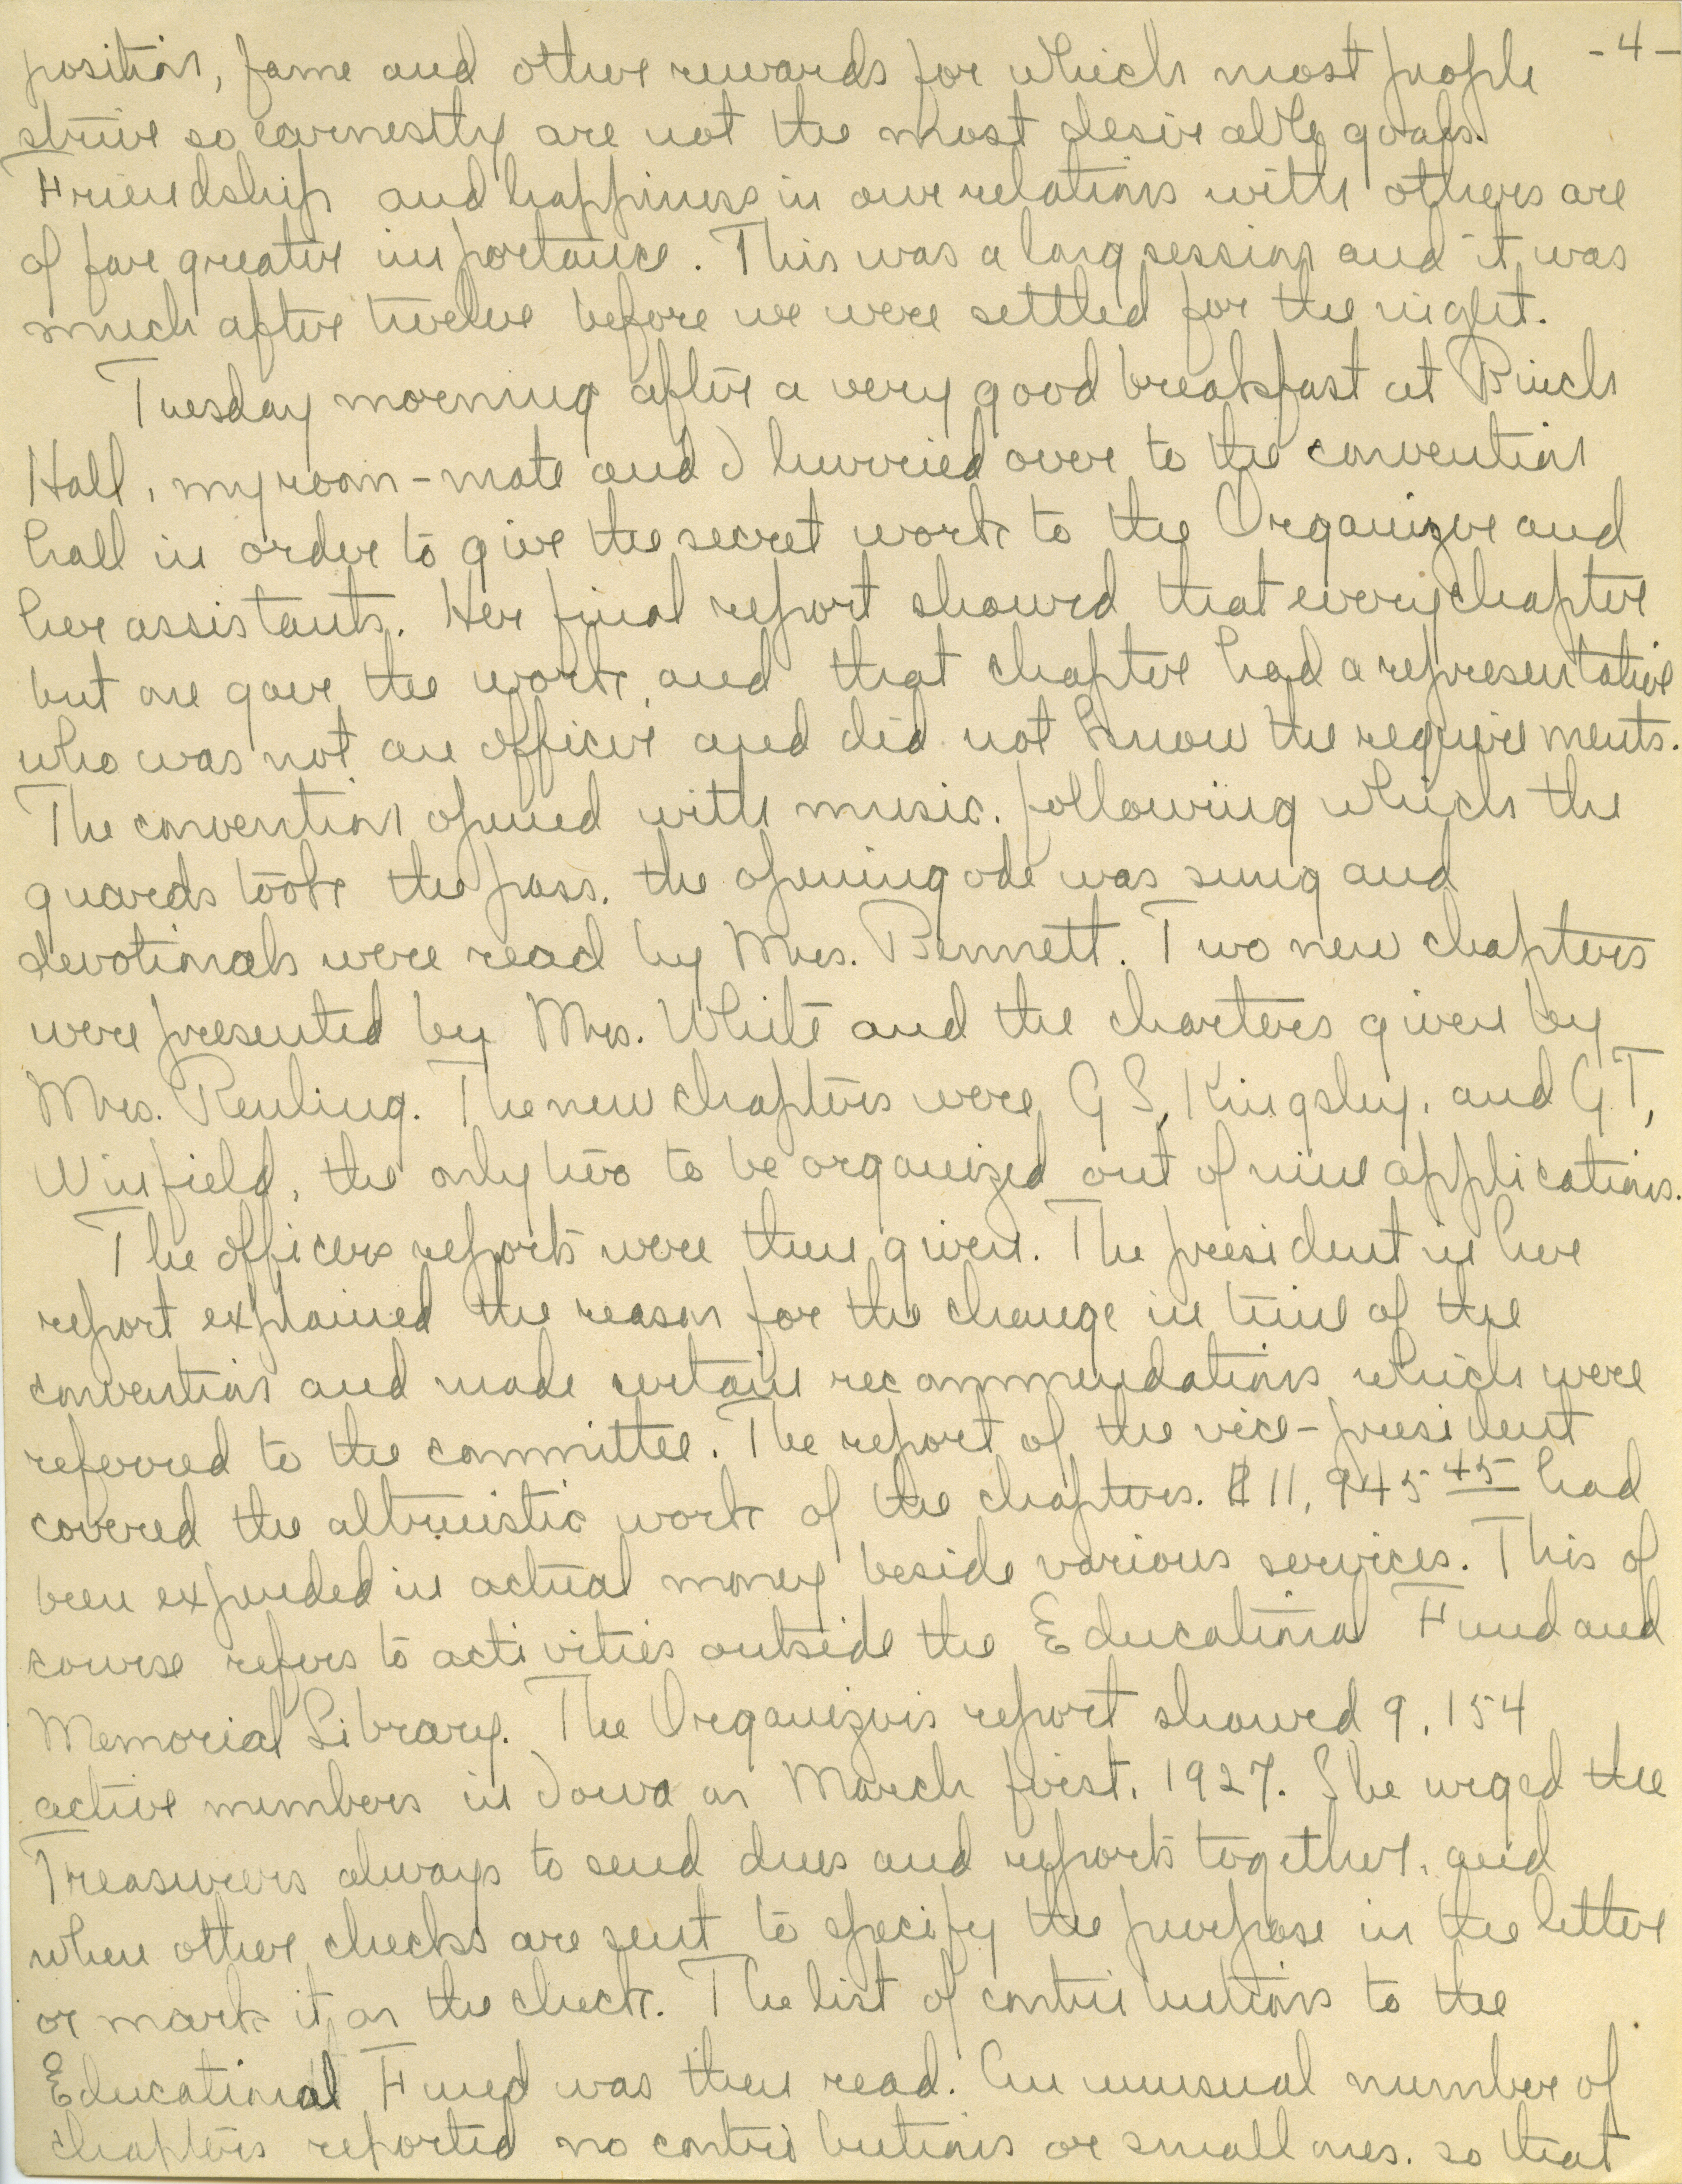 -4-
position, fame and other rewards for which most people
strive so earnestly are not the most desireable goals.
Friendship and happiness in our relations with others are
of far greater importance. This was a long session and it was
much after twelve before we were settled for the night.
Tuesday morning after a very good breakfast at Birch
Hall, my room-mate and I hurried over to the convention
hall in order to give the secret work to the Organizer and
her assistants. Her final report showed that every chapter
but one gave the work, and that chapter had a representative
who was not an officer and did not know the requirements.
The convention opened with music, following which the
guards took the pass, the opening ode was sung and
devotionals were read by Mrs. Bennett. Two new chapters
were presented by Mrs. White and the charters given by
Mrs. Reuling. The new chapters were G S, Kingsley, and G.T,
Winfield, the only two to be organized out of nine applications.
The officers reports were then given. The president in her
report explained the reason for the change in time of the
convention and made certain recommendations which were
referred to the committee. The report of the vice-president
covered the altruistic work of the chapters. $11,945 45 had
been expended in actual money beside various services. This of
course refers to activities outside the Educational Fund and
Memorial Library. The Organizer's report showed 9,154
active members in Iowa on March first, 1927. She urged the
Treasurers always to send dues and reports together, and
when other checks are sent to specify the purpose in the letter
or mark it on the check. The list of contributions to the
Educational Fund was then read. An unusual number of
chapters reported no contributions or small ones, so that